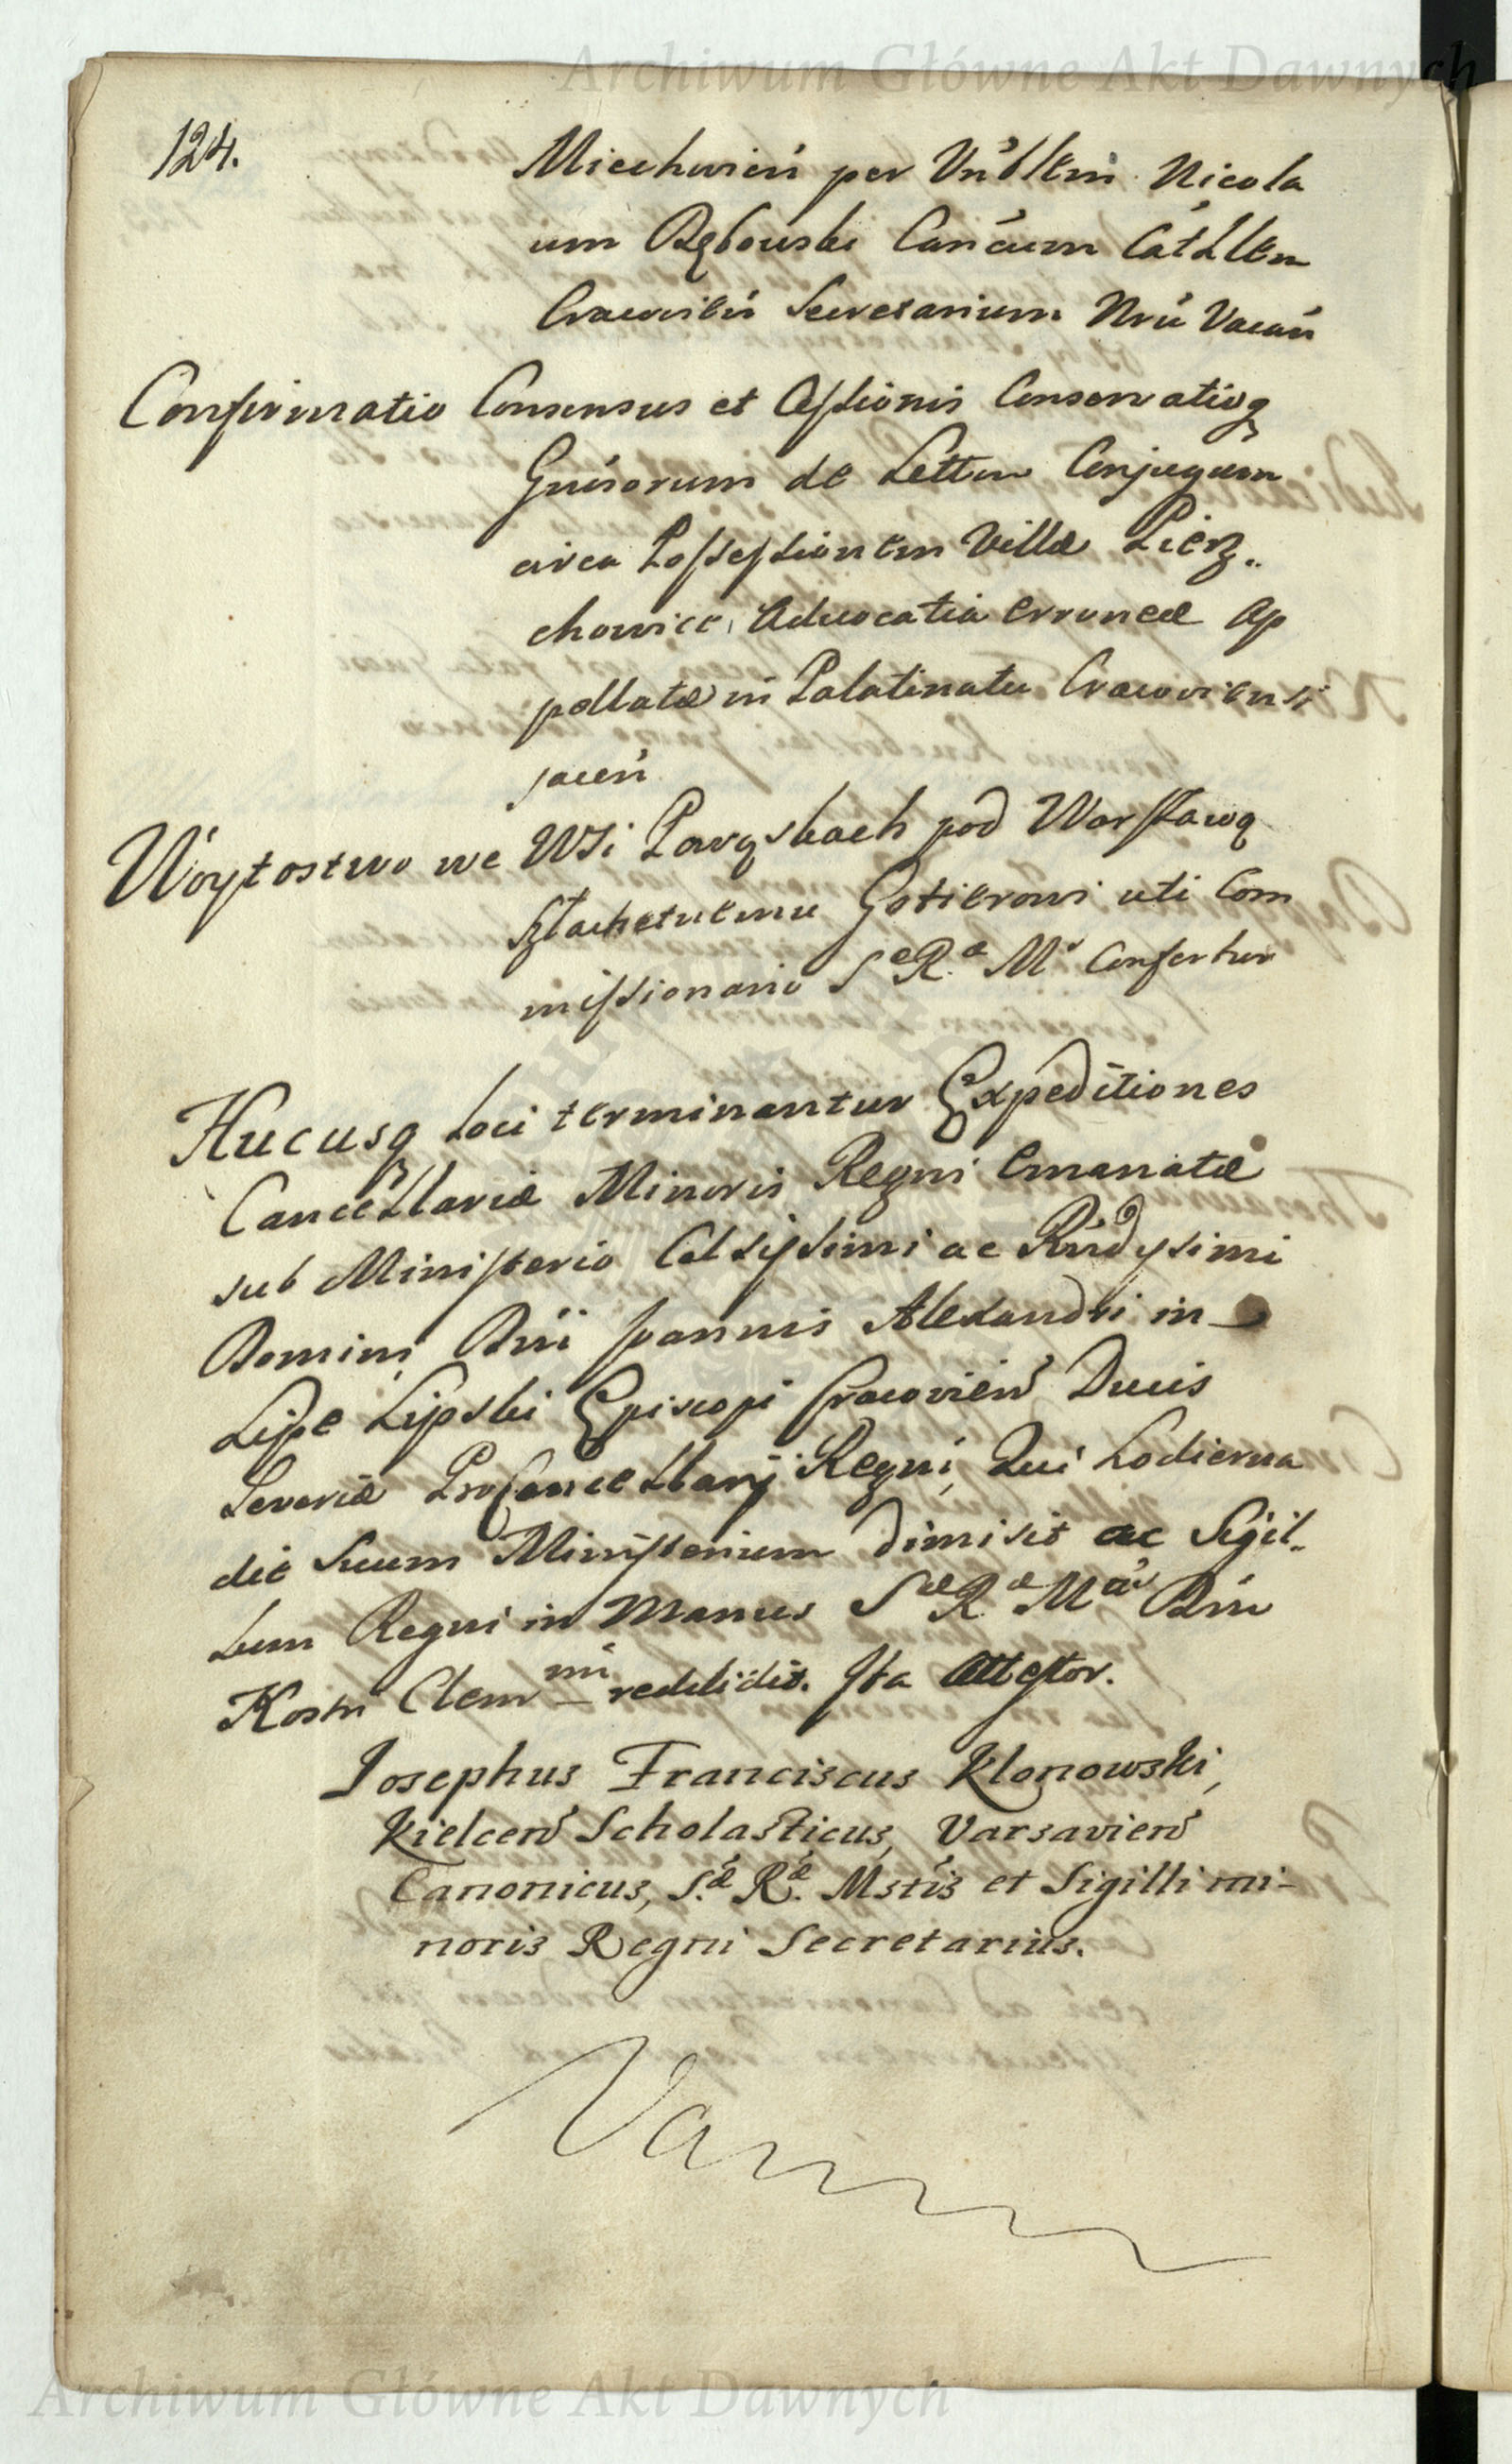 Archiwum Główne Akt Dawnych
124.
Miechovien per Vnblem Nicola
um Rębowski Cancum Cathlem
Cracovien Secretarium Nrũ Vacań
Confirmatio Consensus et Cessionis Conservatioq
Gnisorum de Lettow Conjugum
circa Possessionem Villæ Pierz..
chowice, Advocatia erroneæ ap
pellatæ in Palatinatu Cracoviensi
jacen
Woytostwo we WSi Parysbach pod Warszawą
Szlachetnemu Gotierowi uti Com
missionario S e R.æ M Confertur
Hucusq loci terminantur Expeditiones
Cancellariæ Minoris Regni Emanatæ
sub Ministerio Celsissimi ac Rndyssimi
Domini Dni Joannis Alexandri in
Lipe Lipski Episcopi Cracovien Ducis
Severiæ ProCancellarij Regni, Qui hodierna
die Suum Ministerium dimisit ac Sigil..
lum Regni in Manus S æ R æ M Dni
Nostri Clem mi reddidit. Ita Attestor.
Josephus Franciscus Klonowski,
Kielcen Scholasticus, Varsavien
Canonicus, S.æ R.æ Mstis et Sigilli mi-
noris Regni Secretarius.
Archiwum Główne Akt Dawnych